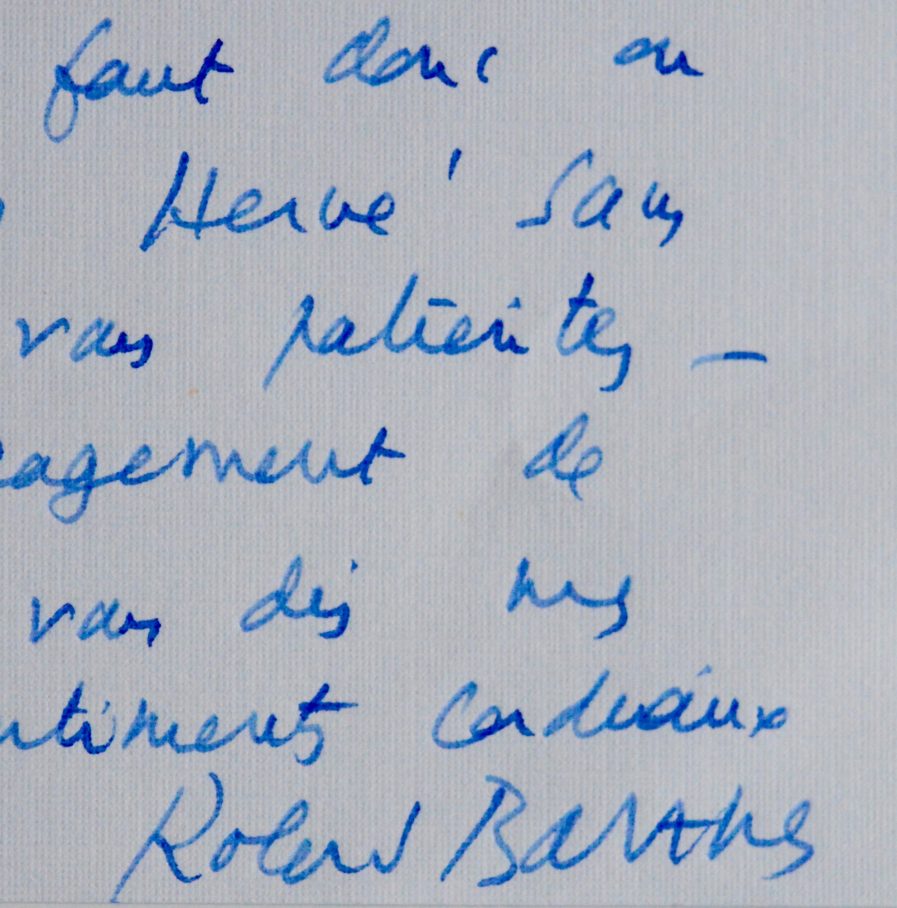 faut donc on
Hervé sans
vous patientes —
agement de
vous dis mes
ntiments cordiaux
Roland Barthes